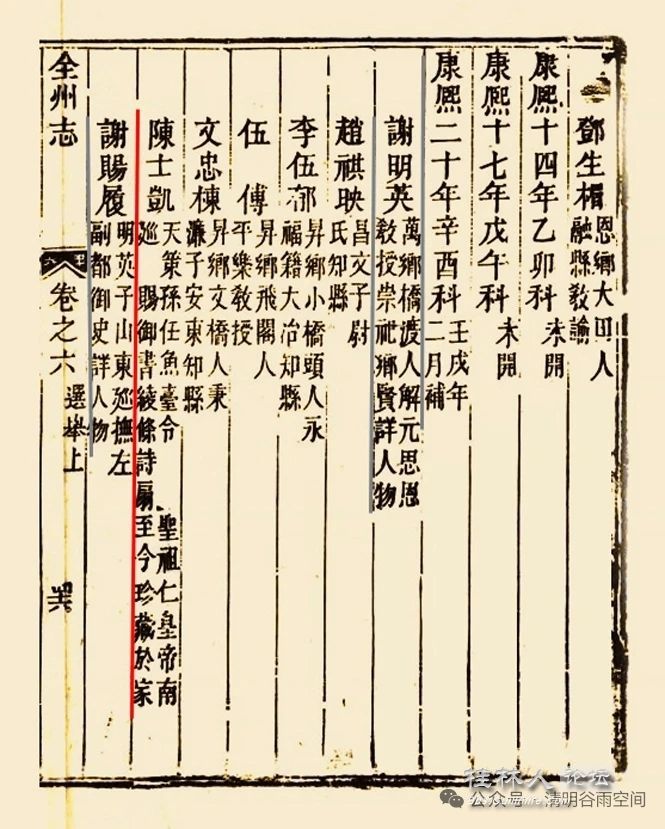 鄧生楣
恩鄉大田人
融縣教諭
康熙十四年乙卯科 未開
康熙十七年戊午科 未開
康熙二十年辛酉科
壬戌年
二月補
謝明英
萬鄉橋渡人解元思恩
教授崇祀鄉賢詳人物
趙祺映
昌文子尉
氏知縣
李伍
昇鄉小橋頭人永
福籍大冶知縣
伍傅
昇鄉飛閣人
平樂教授
文忠棟
昇鄉文橋人秉
濂子安東知縣
陳士凱
天策孫任魚臺令 聖祖仁皇帝南
巡 賜御書綾條詩扇至今珍藏於家
謝賜履
明英子山東巡撫左
副都御史詳人物
全州志 卷之六 選舉上
桂林人论坛
公众号 · 清明谷雨空间